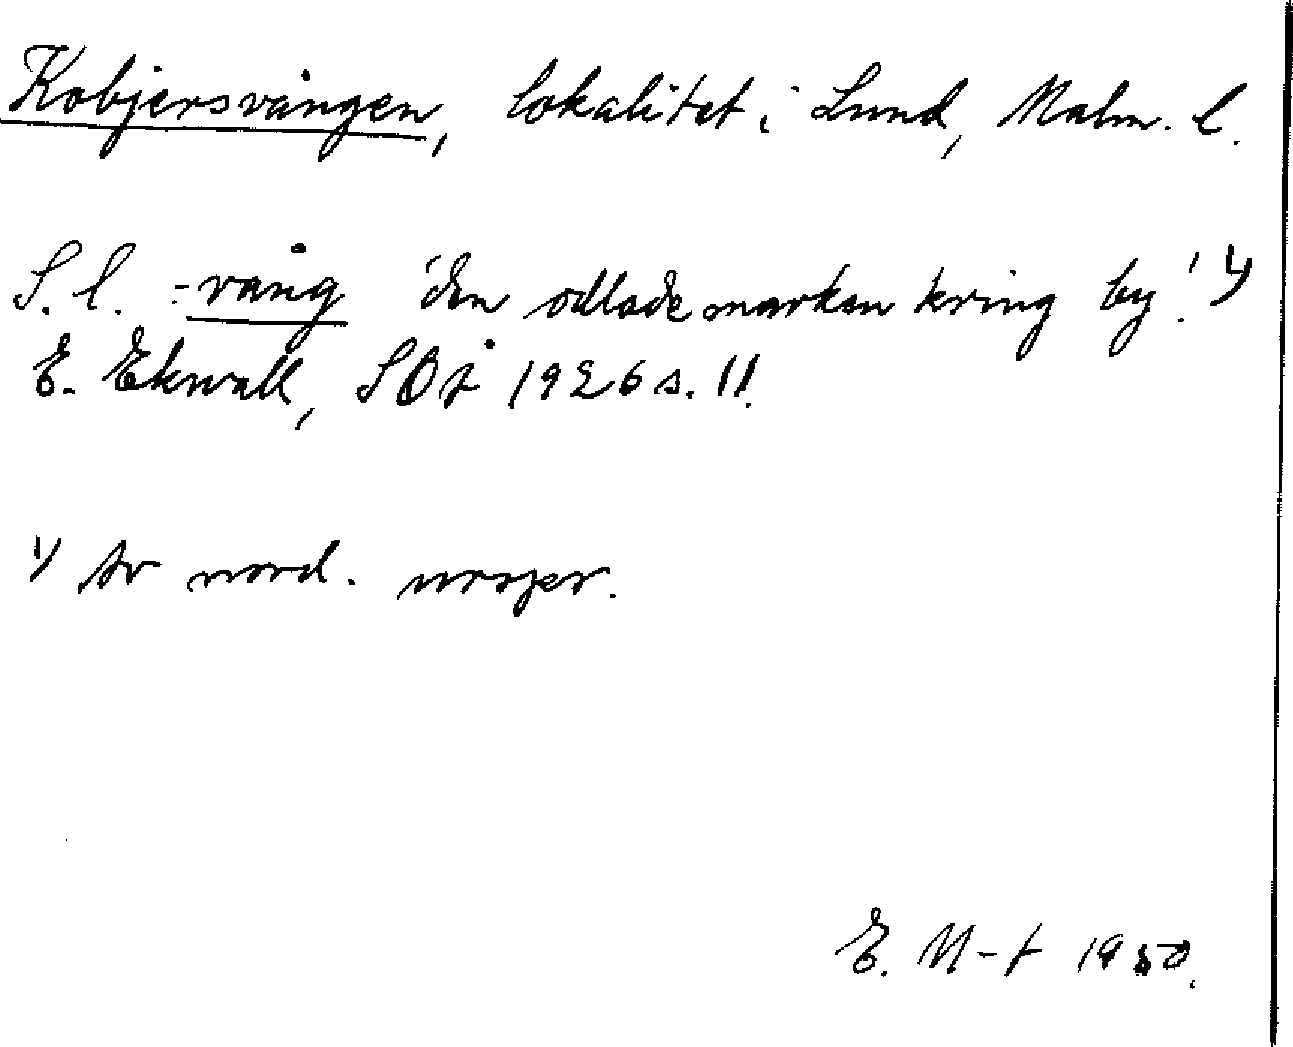 Kobjersvången, lokalitet i Lund, Malm. l.
S. l. -vång 'den odlade marken kring by'. 1)
E. Ekwall, SOÅ 1926 s. 11.
1) Av nord. urspr.
E. M-t 1950.